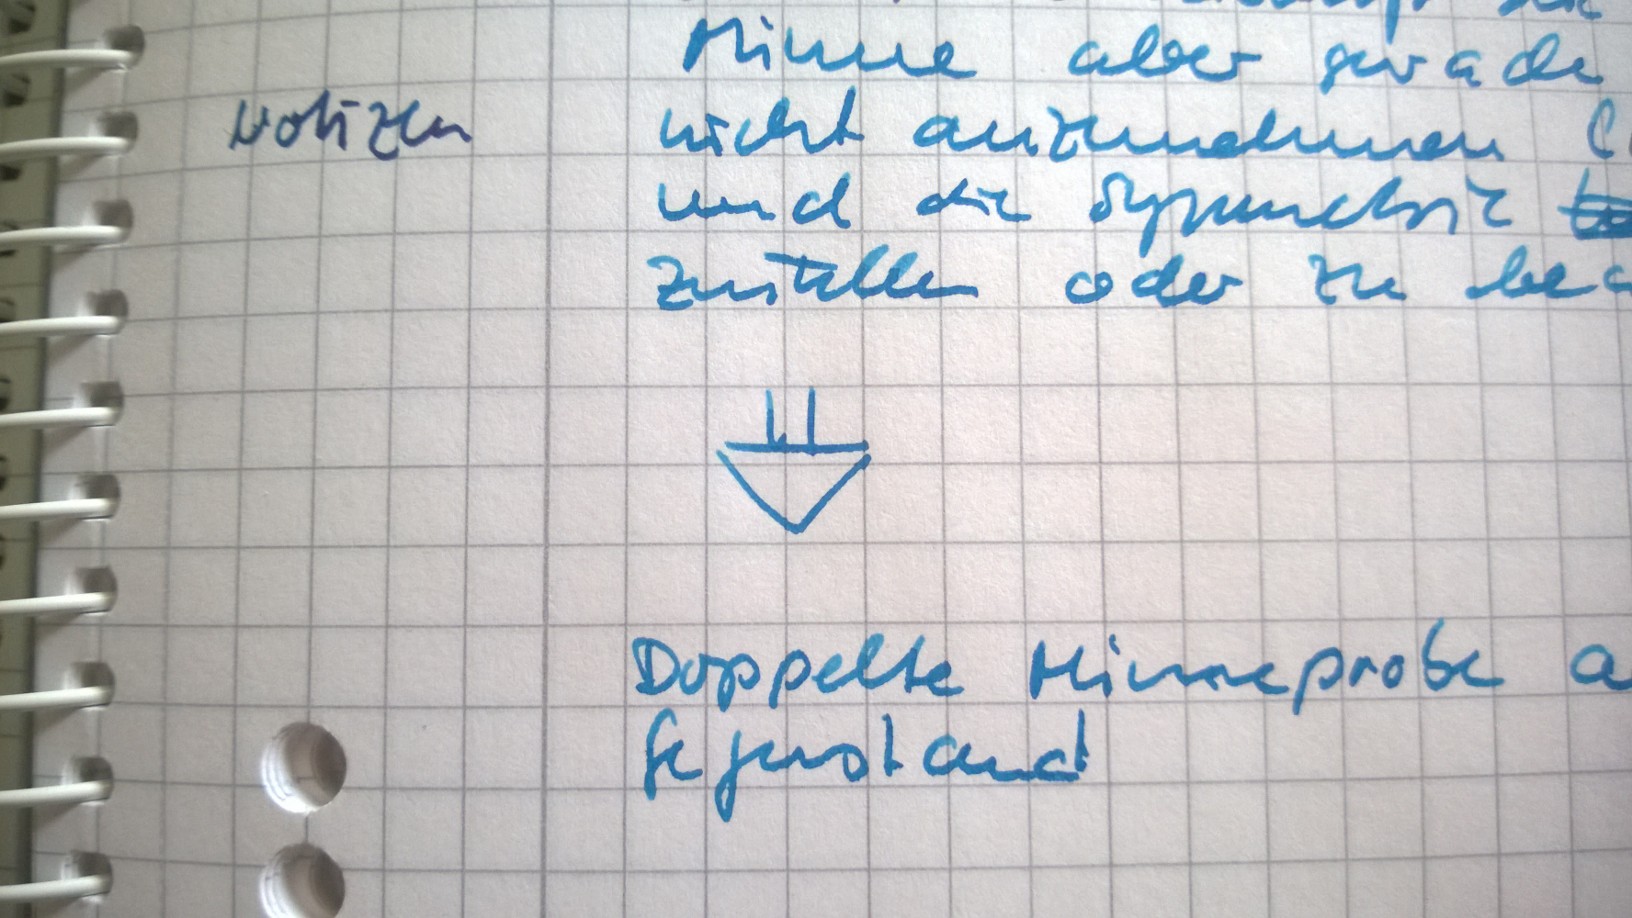 Minne aber gerade
Notizen
nicht anzunehmen (
und die Symmetrie
zustellen oder zu
Doppelte Minneprobe
Gegenstand